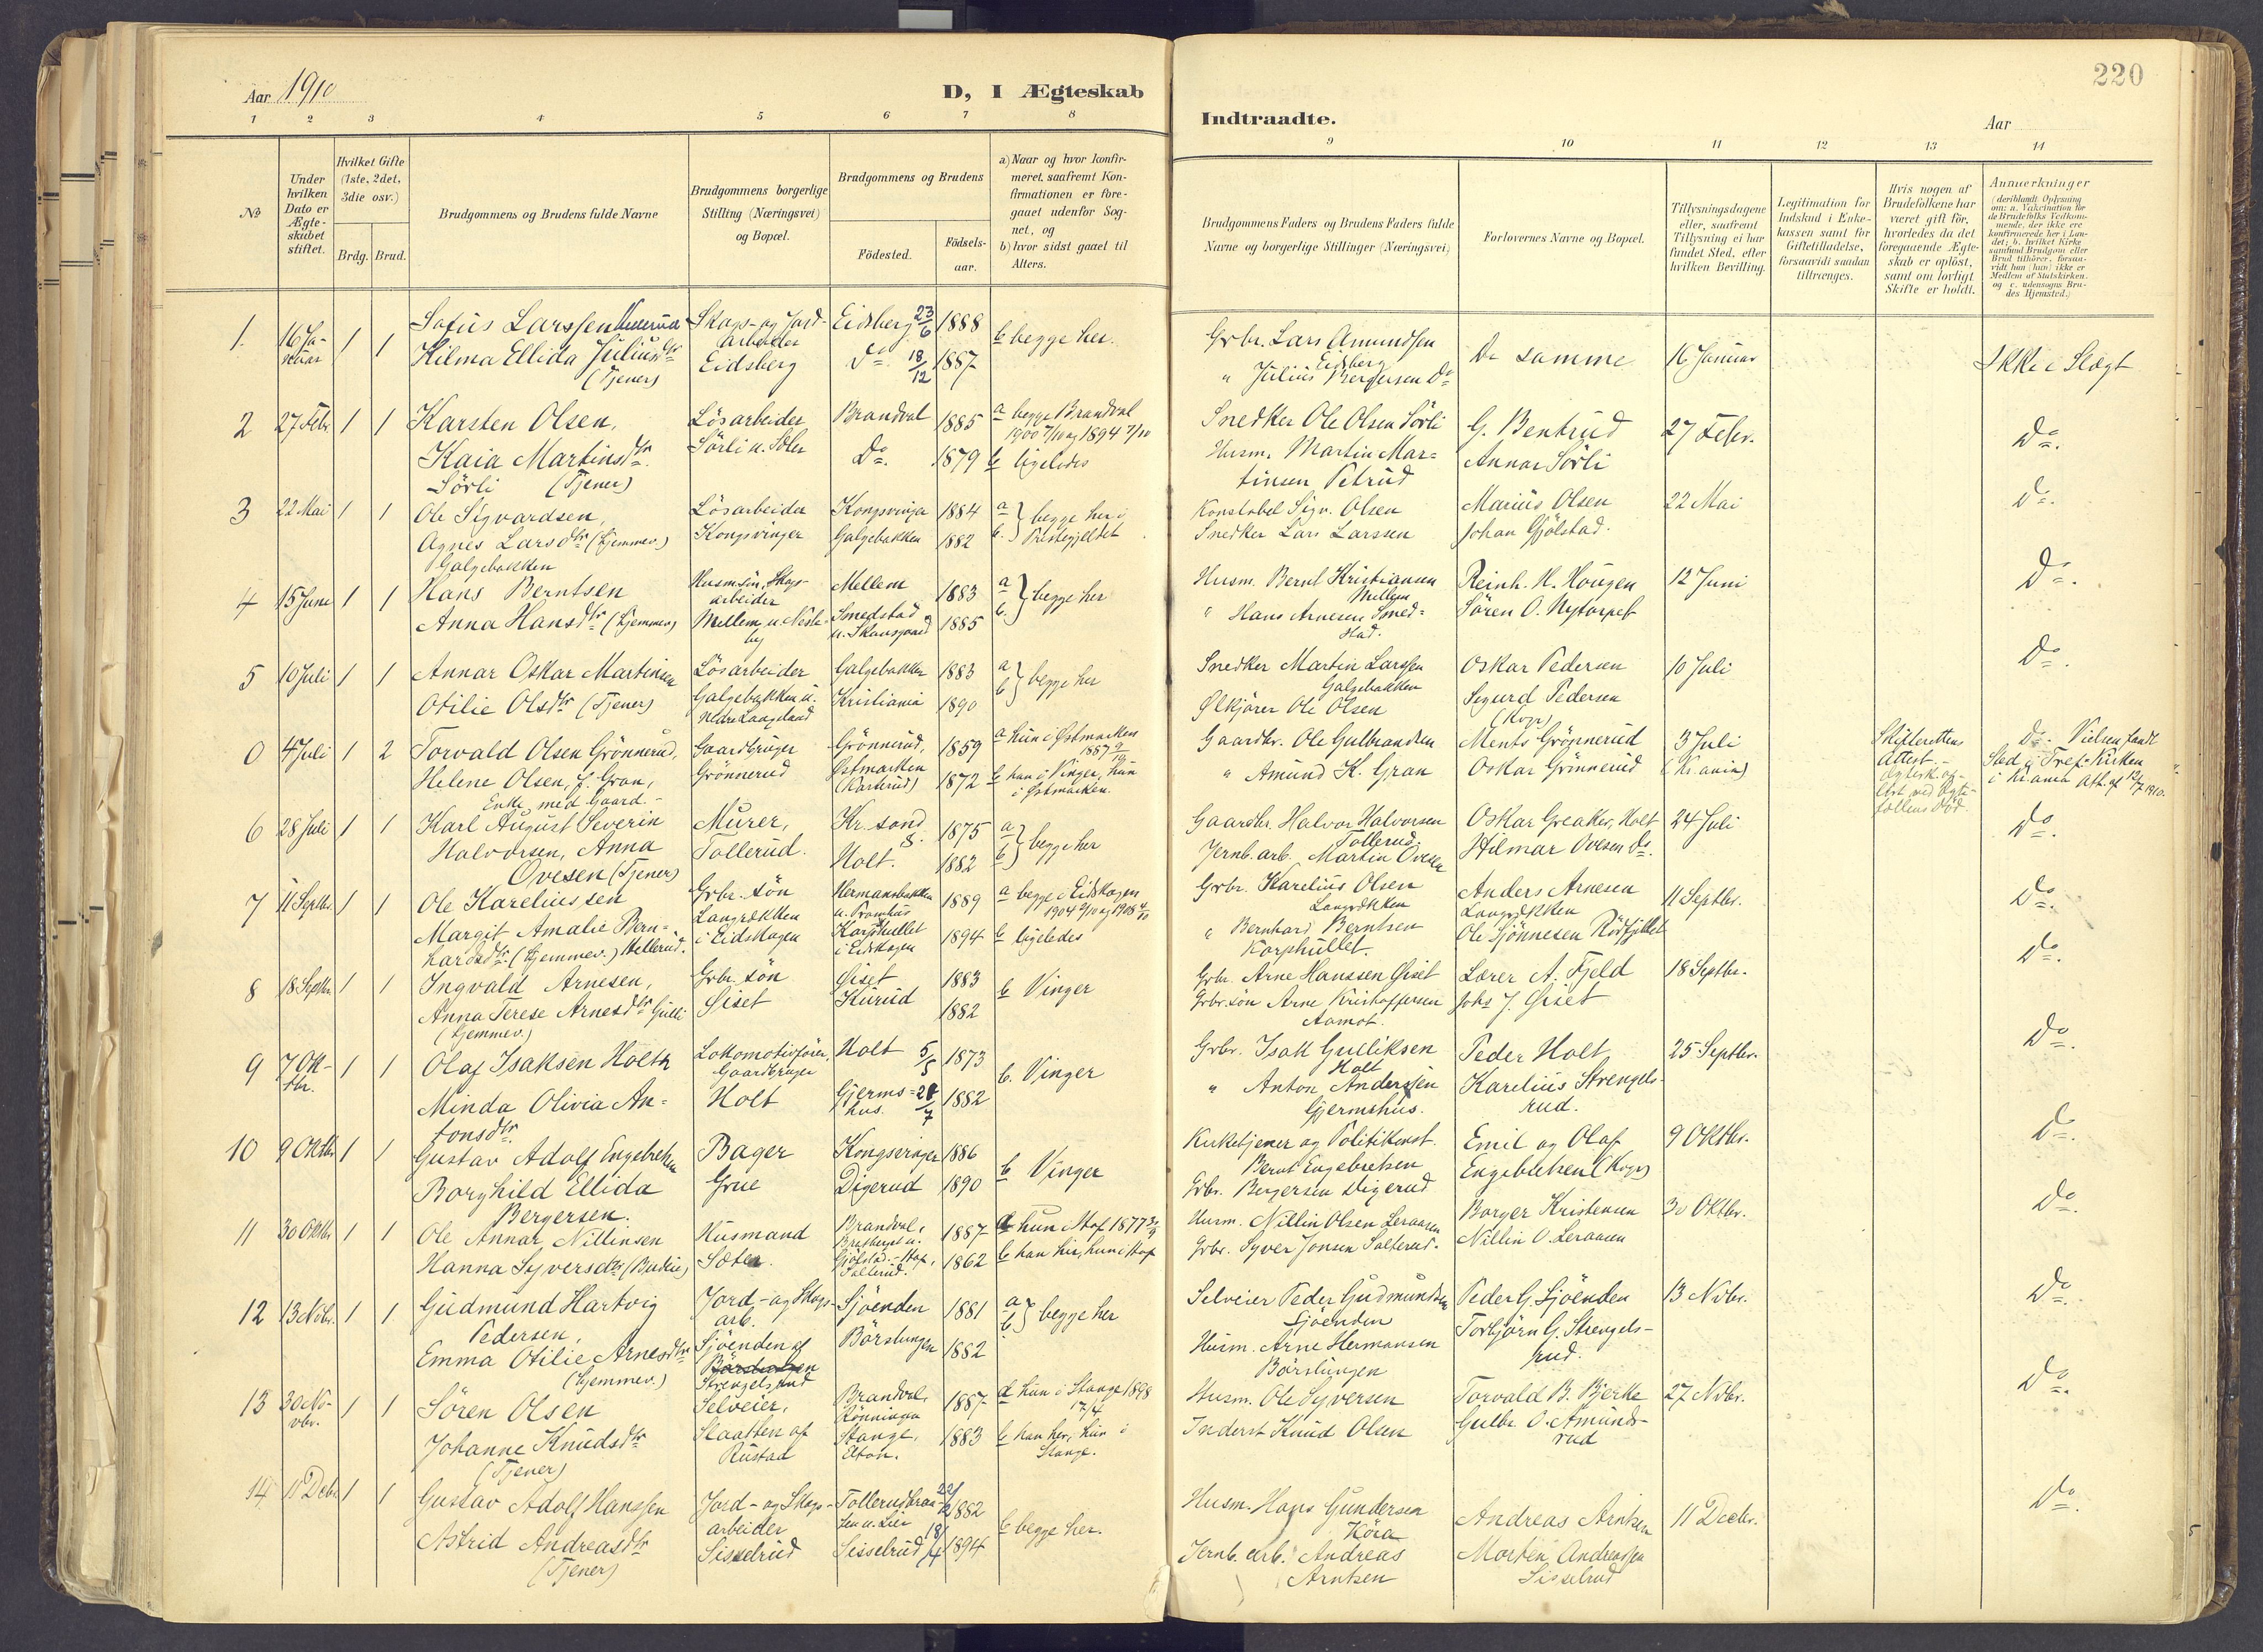 220
Aar 1910
D, I Ægteskab
Indtraadte.
Aar
1 2 3 4 5 6 7 8 9 10 11 12 13 14
No
Under hvilken Dato er Ægte-skabet stiftet.
Hvilket Gifte (1ste, 2det, 3die osv.)
Brdg. Brud.
Brudgommens og Brudens fulde Navne
Brudgommens borgerlige Stilling (Næringsvei) og Bopæl.
Brudgommens og Brudens
Födested.
Födsels-aar.
a) Naar og hvor konfir-meret, saafremt Kon-firmationen er fore-gaaet udenfor Sog-net, og
b) hvor sidst gaaet til Alters.
Brudgommens Faders og Brudens Faders fulde Navne og borgerlige Stillinger (Næringsvei)
Forlovernes Navne og Bopæl.
Tillysningsdagene eller, saafremt Tillysning ei har fundet Sted, efter hvilken Bevilling.
Legitimation for Indskud i Enke-kassen samt for Giftetilladelse, forsaavidt saadan tiltrænges.
Hvis nogen af Brudefolkene har været gift för, hvorledes da det foregaaende Ægte-skab er oplöst, samt om lovligt Skifte er holdt.
Anmerkninger (deriblandt Oplysning om: a. Vakcination for de Brudefolks Vedkom-mende, der ikke ere konfirmerede her i Lan-det; b. hvilket Kirke samfund Brudgom eller Brud tilhörer, forsaa-vidt han (hun) ikke er Medlem af Statskirken. og c. udensogns Bru-des Hjemsted.)
1. 16 Ja-nuar 1 1 Sofus Larssen
Hilma Ellida Juliusdtr (Tjener)
Skogs- og Jord-arbeider Eidsberg
Eidsberg 23/6 1888
Do 18/12 1887
b begge her.
Grbr. Lars Amundsen Eidsberg
" Julius Bergersen Do
De samme
16 Januar
Ikke i Slegt
2 27 Febr. 1 1 Karsten Olsen,
Kaia Martinsdtr. Sörli (Tjener)
Lösarbeider Sörli u. Soler
Brandval 1885
Do. 1879
a begge Brandval 1900 7/10 og 1894 7/10
b ligeledes
Snedker Ole Olsen Sörli
Husm. Martin Mar-tinsen Petrud
G. Bentrud
Annar Sörli
27 Febr.
Do.
3 22 Mai 1 1 Ole Sigvardsen,
Agnes Larsdtr (hjemmev.) Galgebakken
Lösarbeider Kongsvinger
Kongsvinger 1884
Galgebakken 1882
a b. begge her i Prestegjeldet
Konstabel Sigv. Olsen
Snedker Lars Larssen
Marius Olsen
Johan Gjölstad.
22 Mai
Do.
4 15 Juni 1 1 Hans Berntsen
Anna Hansdtr (hjemmev)
Husm.sön, Skogs-arbeider
Mellem 1883
Smedstad u. Skansgaard 1885
a b. begge her
Husm. Bernt Kristiansen Mellem
" Hans Arnesen Smed-stad.
Reinh. H. Hougen
Sören O. Nytorpet
12 Juni
Do.
5 10 Juli 1 1 Annar Oskar Martinsen
Otilie Olsdtr (Tjener)
Lösarbeider Galgebakken u. nedre Laugeland
Galgebakken 1883
Kristiania 1890
a b begge her
Snedker Martin Larssen Galgebakken
Ølkjörer Ole Olsen
Oskar Pedersen
Sigurd Pedersen (Kvgr)
10 Juli
Do.
0 4 Juli 1 2 Torvald Olsen Grönnerud,
Helene Olsen, f. Gran, Enke med Gaard.
Gaardbruger Grönnerud
Grönnerud, 1859
Østmarken 1872
a hun i Østmarken 1887
b han i Vinger, hun i Østmarken.
Gaardbr. Ole Gulbrandsen
" Amund K. Gran
Ments Grönnerud
Oskar Grönnerud
3 Juli (Kr.ania)
Skifterettens Attest.
Do. Vielsen fandt Sted i Tref. Kirken i Kr.ania Att. af 13/7 1910.
6 28 Juli 1 1 Karl August Severin Halvorsen, Anna Ovesen (Tjener)
Murer, Tollerud.
Kr.sand S. 1875
Holt. 1882
a b begge her
Gaardbr. Halvor Halvorsen Tollerud
Jernb. arb. Martin Ovesen
Oskar Greaker, Holt
Hilmar Ovesen Do.
24 Juli
Do.
7 11 Septbr. 1 1 Ole Kareliussen
Margit Amalie Bern-hardsdtr. (hjemmev.) Hellerud.
Grbr. sön Langrekken i Eidskogen
Hermansbakken 1889
Korphullet i Eidskogen 1894
a begge i Eidskogen 1904 2/10 og 1908 4/10
b ligeledes
Grbr. Karelius Olsen Langrekken
" Bernhard Berntsen Korphullet.
Anders Arnesen Langrekken
Ole Sjönnesen Rödfjellet
11 Septbr.
Do.
8 18 Septbr. 1 1 Ingvald Arnesen,
Anna Terese Arnesdtr Gulli (hjemmev.)
Grbr. sön Siset
Siset 1883
Kurud 1882
b Vinger
Grbr. Arne Hanssen Siset
Grbr.sön Arne Kristoffersen Aamot.
Lærer A. Fjeld
Johs J. Siset
18 Septbr.
Do.
9 7 Ok-tbr. 1 1 Olaf Isaksen Holth
Minda Olivia An-tonsdtr.
Lokomotivförer, Gaardbruger Holt
Holt 5/5 1873
Gjerms-hus. 21/7 1882
b. Vinger
Grbr. Isak Gulliksen Holt
" Anton Anderssen Gjermshus.
Peder Holt
Karelius Strengels-rud.
25 Septbr.
Do.
10 9 Oktbr 1 1 Gustav Adolf Engebretsen
Borghild Ellida Bergersen.
Bager Grue
Kongsvinger 1886
Digerud 1890
b Vinger
Kirketjener og Politikonst. Bernt Engebretsen
Grbr. Bergersen Digerud
Emil og Olaf Engebretsen (Kvgr)
9 Oktbr.
Do.
11 30 Oktbr 1 1 Ole Annar Nillinsen
Hanna Syversdtr (Budeie)
Husmand Soler.
Brandval, 1887
Gjölstad. - Hof, Salterud. 1862
a hun Hof 1877
b han her, hun i Hof
Husm. Nillin Olsen Leraasen
Grbr. Syver Jonsen Salterud.
Borger Kristensen
Nillin O. Leraasen
30 Oktbr.
Do.
12 13 Nvbr. 1 1 Gudmund Hartvig Pedersen,
Emma Otilie Arnesdtr (hjemmev.)
Jord- og Skogs-arb. Sjöenden af Strengelsrud
Sjöenden 1881
Börslungen 1882
a b begge her
Selveier Peder Gudmundsen Sjöenden
Husm. Arne Hermansen Börslungen
Peder G. Sjöenden
Torbjörn G. Strengels-rud.
13 Nvbr.
Do.
13 30 No-vbr. 1 1 Sören Olsen
Johanne Knudsdtr (Tjener)
Selveier, Slaatten af Rustad
Brandval, Rönningen 1887
Stange, 1883
a hun i Stange 1898 17/4
b han her, hun i Stange.
Husm. Ole Syversen
Inderst Knud Olsen
Torvald B. Bjerke
Gulbr. O. Amunds-rud
27 Nvbr.
Do.
14. 11 Debr 1 1 Gustav Adolf Hanssen
Astrid Andreasdtr (Tjener)
Jord- og Skogs-arbeider Sisselrud
1882
Sisselrud 18/4 1894
b begge her.
Husm. Hans Gundersen Köia
Jernb. arb. Andreas Arntsen
Andreas Arntsen
Morten Andreassen Sisselrud
11 Decbr.
Do.